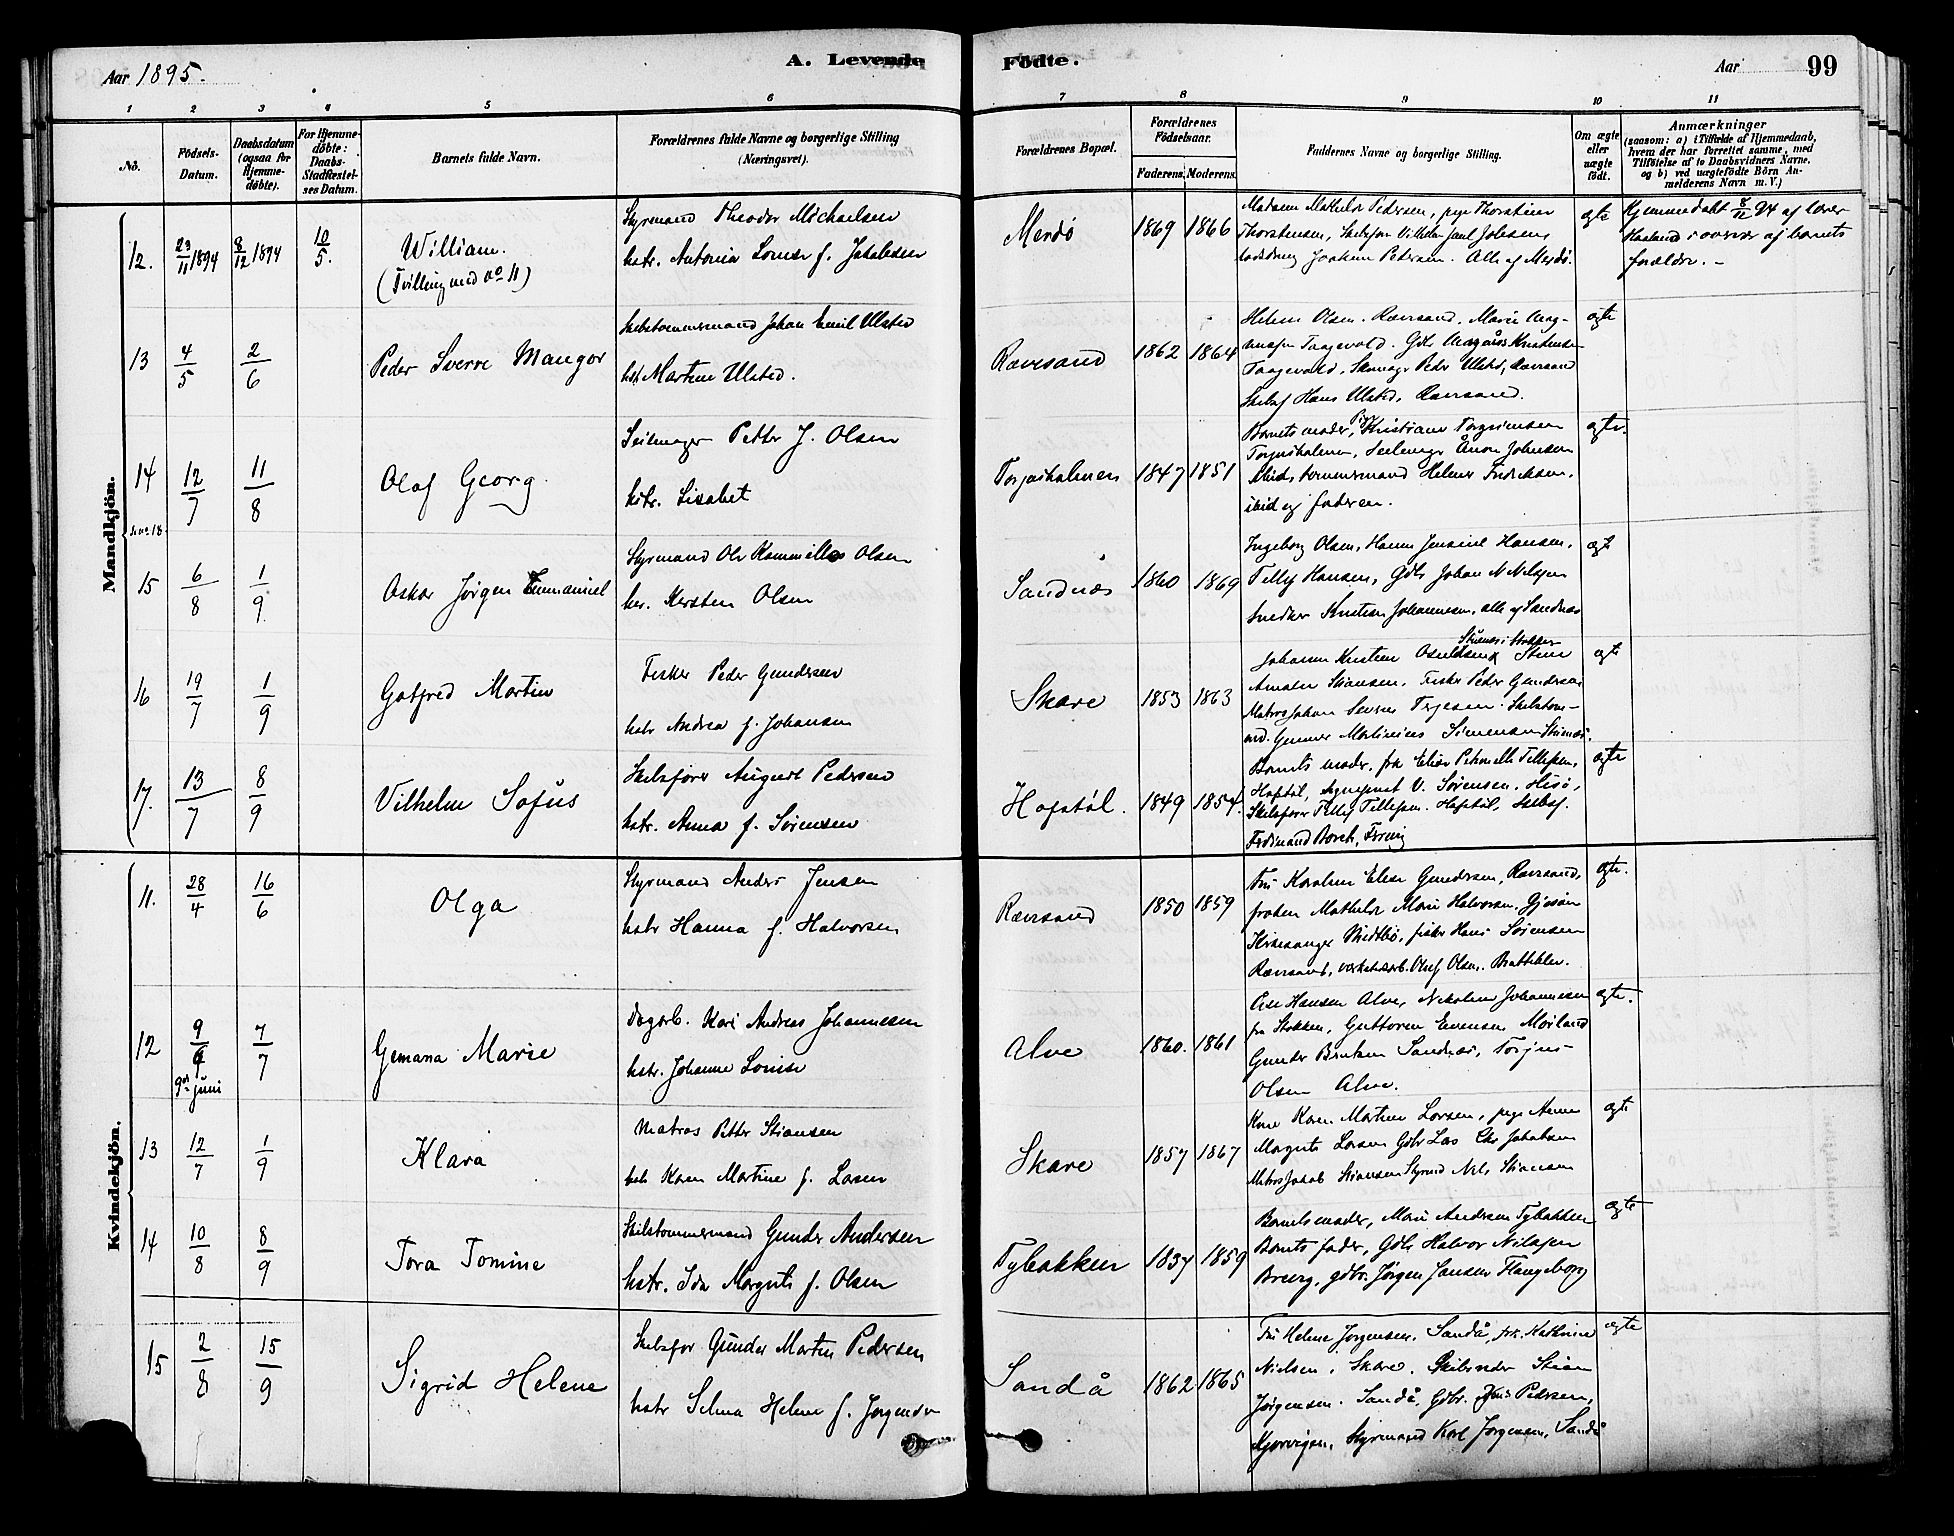 Aar 1895.
A. Levende Fødte.
Aar
99
1 2 3 4 5 6 7 8 9 10 11
No.
Fødsels-Datum.
Daabsdatum (ogsaa for Hjemme-døbte).
For Hjemme-døbte: Daabs-Stadfæstel-ses Datum.
Barnets fulde Navn.
Forældrenes fulde Navne og borgerlige Stilling (Næringsvei).
Forældrenes Bopæl.
Forældrenes Fødselsaar.
Faderens. Moderens.
Faddernes Navne og borgerlige Stilling.
Om ægte eller uægte født.
Anmærkninger
(saasom: a) i Tilfælde af Hjemmedaab,
hvem der har forrettet samme, med
Tilføielse af to Daabsvidners Navne,
og b) ved uægtefødte Børn An-
melderens Navn m. V.)
Mandkjøn.
12. 23/11 1894 8/12 1894 10/5. William.
(Tvilling med no 11)
Styrmand Theodor Michaelsen
hstr. Antonia Lovise f. Jakobsen
Merdø 1869 1866
Madam Mathilde Pedersen, pige Thorstine
Thorstensen, Skibsfør Vilhelm Juul Jobsen,
Joakim Pedersen. Alle af Merdø.
ægte
Hjemmedøbt 8/12 94 af lærer
Haaland i overvær af barnets
forældre. -
13 4/5 2/6 Peder Sverre Mangor
Skibstømmermand Johan Emil Ulsted
hst Martine Ulsted.
Rævesand 1862 1864
Helene Olsen. Rævesand. Marie Mag-
nusen Taagevold. Gdb Magnus Kristensen
Taagevold, Peder Ulsted, Rævesand
Skibsf Hans Ulsted, Rævesand.
ægte
14 12/7 11/8 Olaf Georg.
Seilmager Petter J. Olsen
hstr. Lisabet
Torjusholmen 1847 1851
Barnets moder, Pige Kristiane Torgrimsen
Torjusholmen, Seilmager Anon Johnsen
ibid, tømmermand Helmer Fredriksen,
ibid og faderen.
ægte.
se no. 18
15 6/8 1/9 Oskar Jørgen Emmanuel
Styrmand Ole Kammillo Olsen
hu. Kirsten Olsen
Sandnæs 1860 1869
Ingeborg Olsen, Hanne Jensine Hansen,
Tellef Hansen, Gdb Johan N Nilsen
Snedker Kristian Johannesen, alle af Sandnæs
ægte
16 19/7 1/9 Gotfred Martin
Fisker Peder Gundersen
hstr Andrea f. Johansen
Skare 1853 1863
Johanne Kristine Osuldsen, Stine
Amalie Stiansen, Fisker Peder Gundersen
Matros Johan Severin Terjesen. Skibstøm-
md. Gunner Martinius Simensen Stuenæs.
ægte
17. 13/7 8/9 Vilhelm Sofus
Skibsfører August Pedersen
hstr. Anna f. Sørensen
Hofstøl. 1849 1854.
Barnets moder, frk Elise Petronelle Tellefsen,
Hofstøl, V. Sørensen, Hisø,
Skibsfører Tellef Tellefsen. Hofstøl, Skibsf.
Ferdinand
ægte
Kvindekjøn.
11. 28/4 16/6 Olga
Styrmand Anders Jensen
hstr Hanna f. Halvorsen
Rævesand 1850 1859
Fru Karoline Elise Gundersen, Rævesand,
frøken Mathilde Marie Halvorsen, Gjessøen
Kirkesanger Midtbø, fisker Hans Sørensen
Rævesand, værkstedsarb. Oluf Olsen, Brattekleiv.
ægte.
12 9/6 7/7 Gemana Marie
9de juni
Dagarb. Karl Andreas Johannesen
hstr. Johanne Louise
Alve 1860. 1861
Elise Hansen Alve, Nikoline Johannesen
fra Stokken, Guttorm Evensen Moiland
Gunder Sandnæs, Torjus
Olsen Alve.
ægte.
13 12/7 1/9 Klara
Matros Petter Stiansen
hstr Karen Martine f. Larsen
Skare 1857 1867
Kone Karen Martine Larsen, pige Anne
Margrete Larsen Gdbr Lars Chr Jakobsen
Matros Jakob Stiansen Styrmd Nils Stiansen
ægte
14 10/8 8/9 Tora Tomine
Skibstømmermand Gunder Andersen
hstr. Ida Margrete f. Olsen
Tybakken 1837 1859
Barnets moder, Marie Andersen Tybakken
Barnets fader, Gdb Halvor Nilsen
gdbr. Jørgen Jansen Haugeborg
ægte
15 2/8 15/9 Sigrid Helene
Skibsfør Gunder Martin Pedersen
hstr Selma Helene f. Jørgensen
Sandå 1862 1865
Fru Helene Jørgensen, Sandå, frk. Kathrine
Nielsen, Skare. Skibsreder Stian
Jørgensen. Sandå, Gdbr. Jens Pedersen,
Styrmand Karl Jørgensen, Sandå
ægte